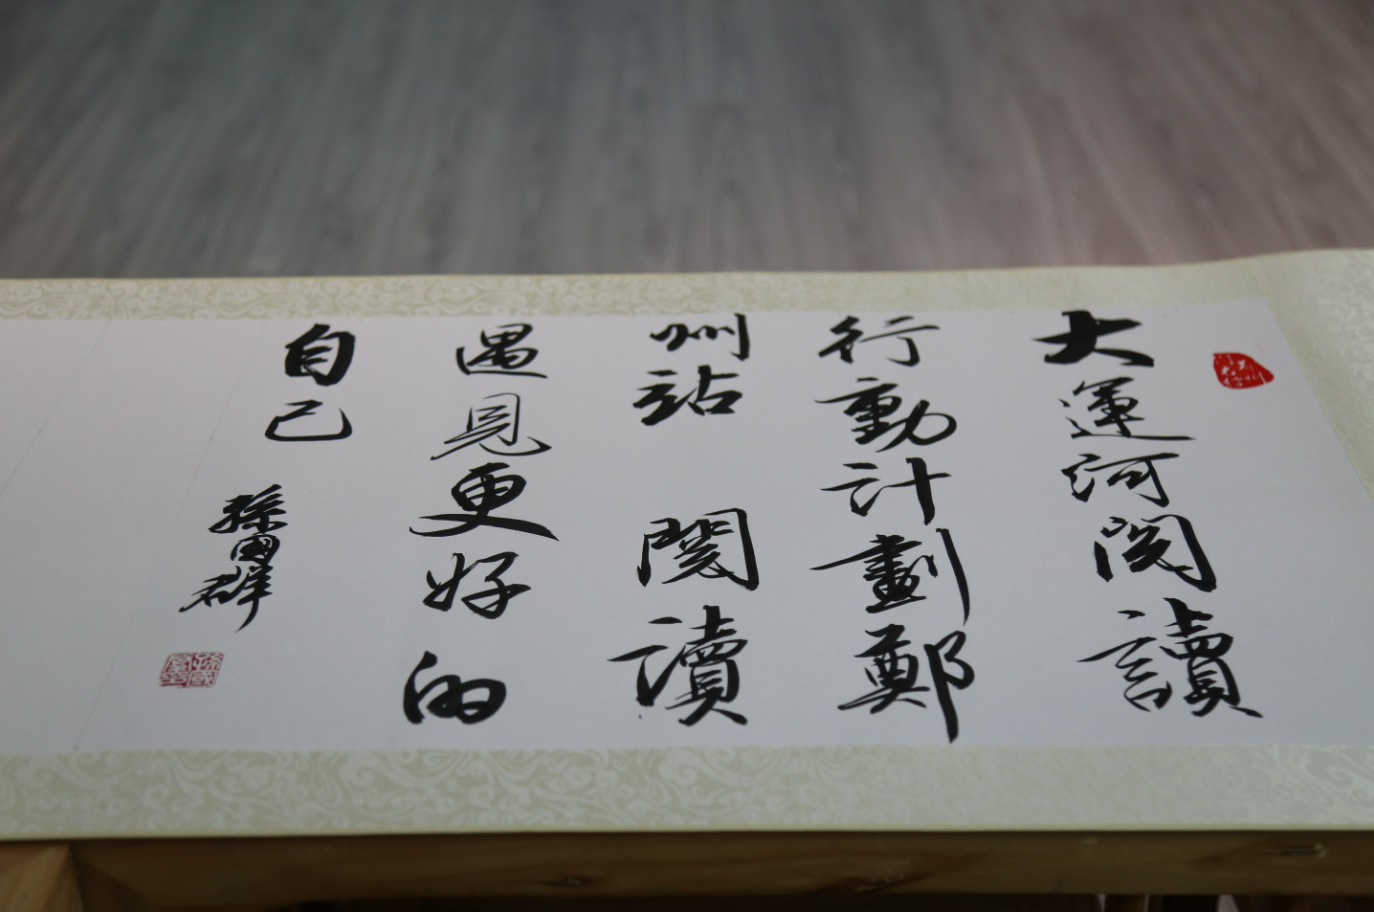 大運河閱讀
行動計劃鄭
州站 閱讀
遇見更好的
自己
孫國群